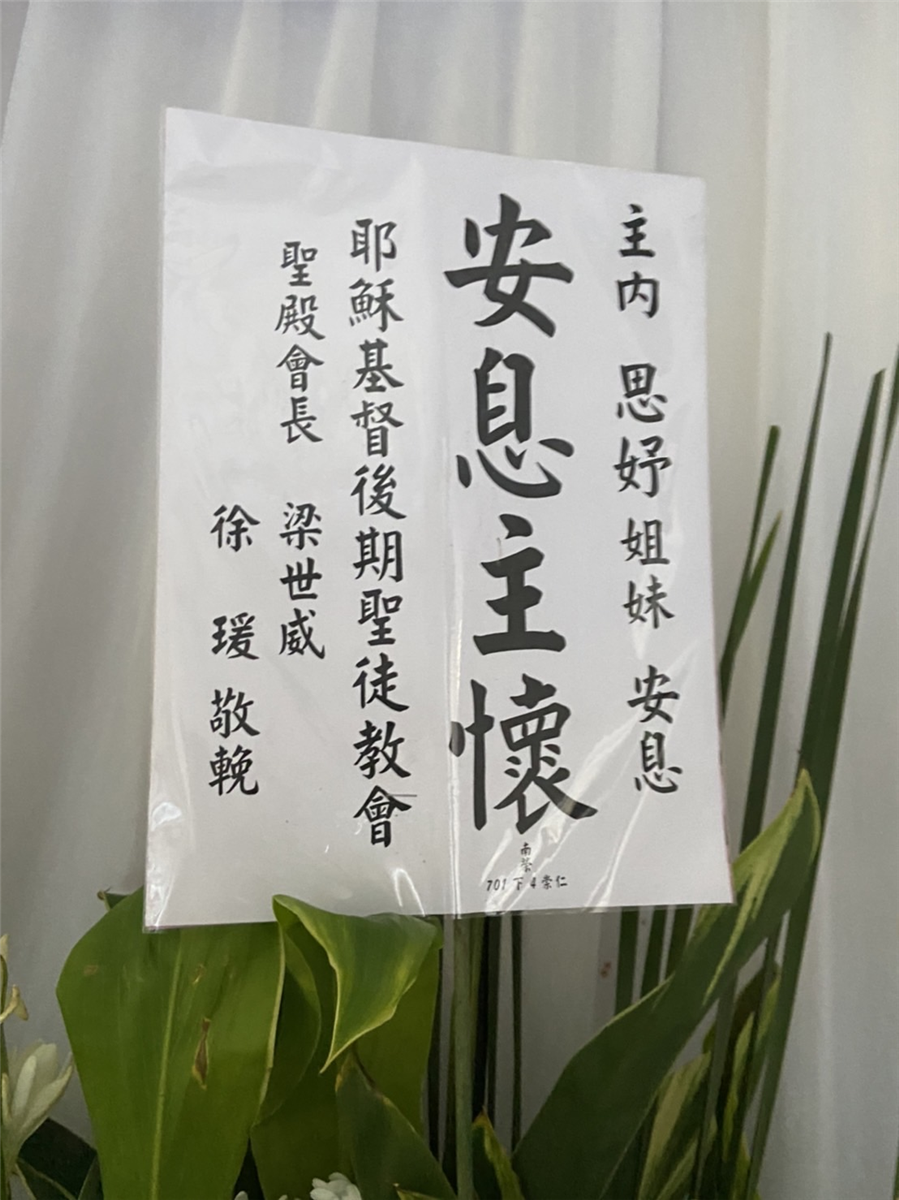 主內 思妤姐妹 安息
安息主懷
南榮
701下4崇仁
耶穌基督後期聖徒教會
聖殿會長 梁世威
徐瑗 敬輓